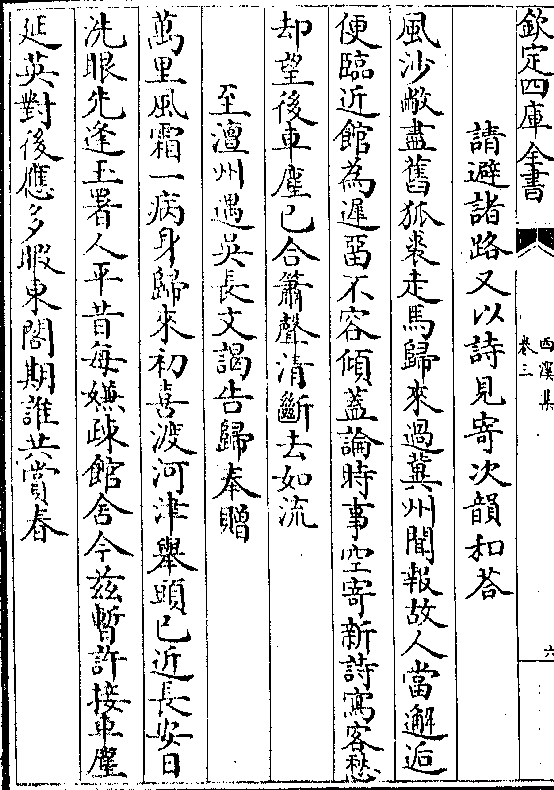 欽定四庫全書
西溪集
卷三
六
請避諸路又以詩見寄次韻和答
風沙敝盡舊狐裘走馬歸來過冀州聞報故人當邂逅
便臨近館為遲留不容傾蓋論時事空寄新詩寫客愁
却望後車塵已合簫聲清斷去如流
至澶州遇吳長文謁告歸奉贈
萬里風霜一病身歸來初喜渡河津舉頭已近長安日
洗眼先逢玉署人平昔每嫌疎館舍今兹暫許接車塵
延英對後應多暇東閣期誰共賞春